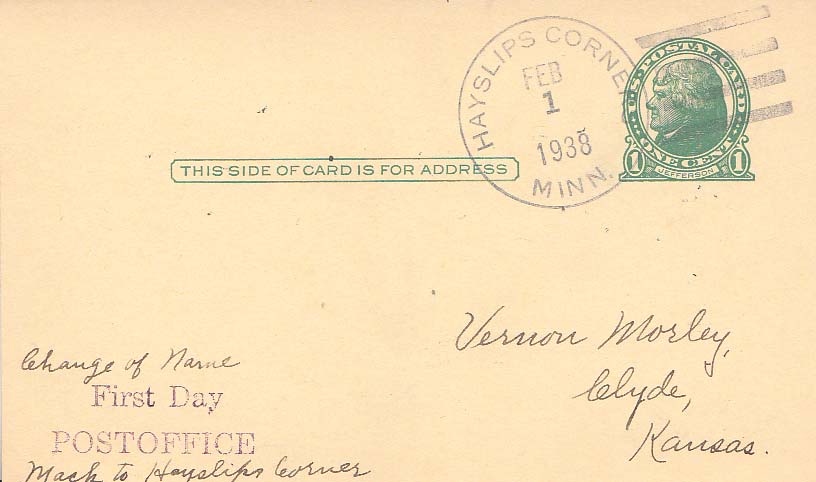 HAYSLIPS CORNER
FEB
1
1938
MINN.
U.S. POSTAL CARD
1 ONE CENT 1
JEFFERSON
THIS SIDE OF CARD IS FOR ADDRESS
Vernon Morley,
Clyde,
Kansas.
Change of Name
First Day
POSTOFFICE
Mack to Hayslips Corner